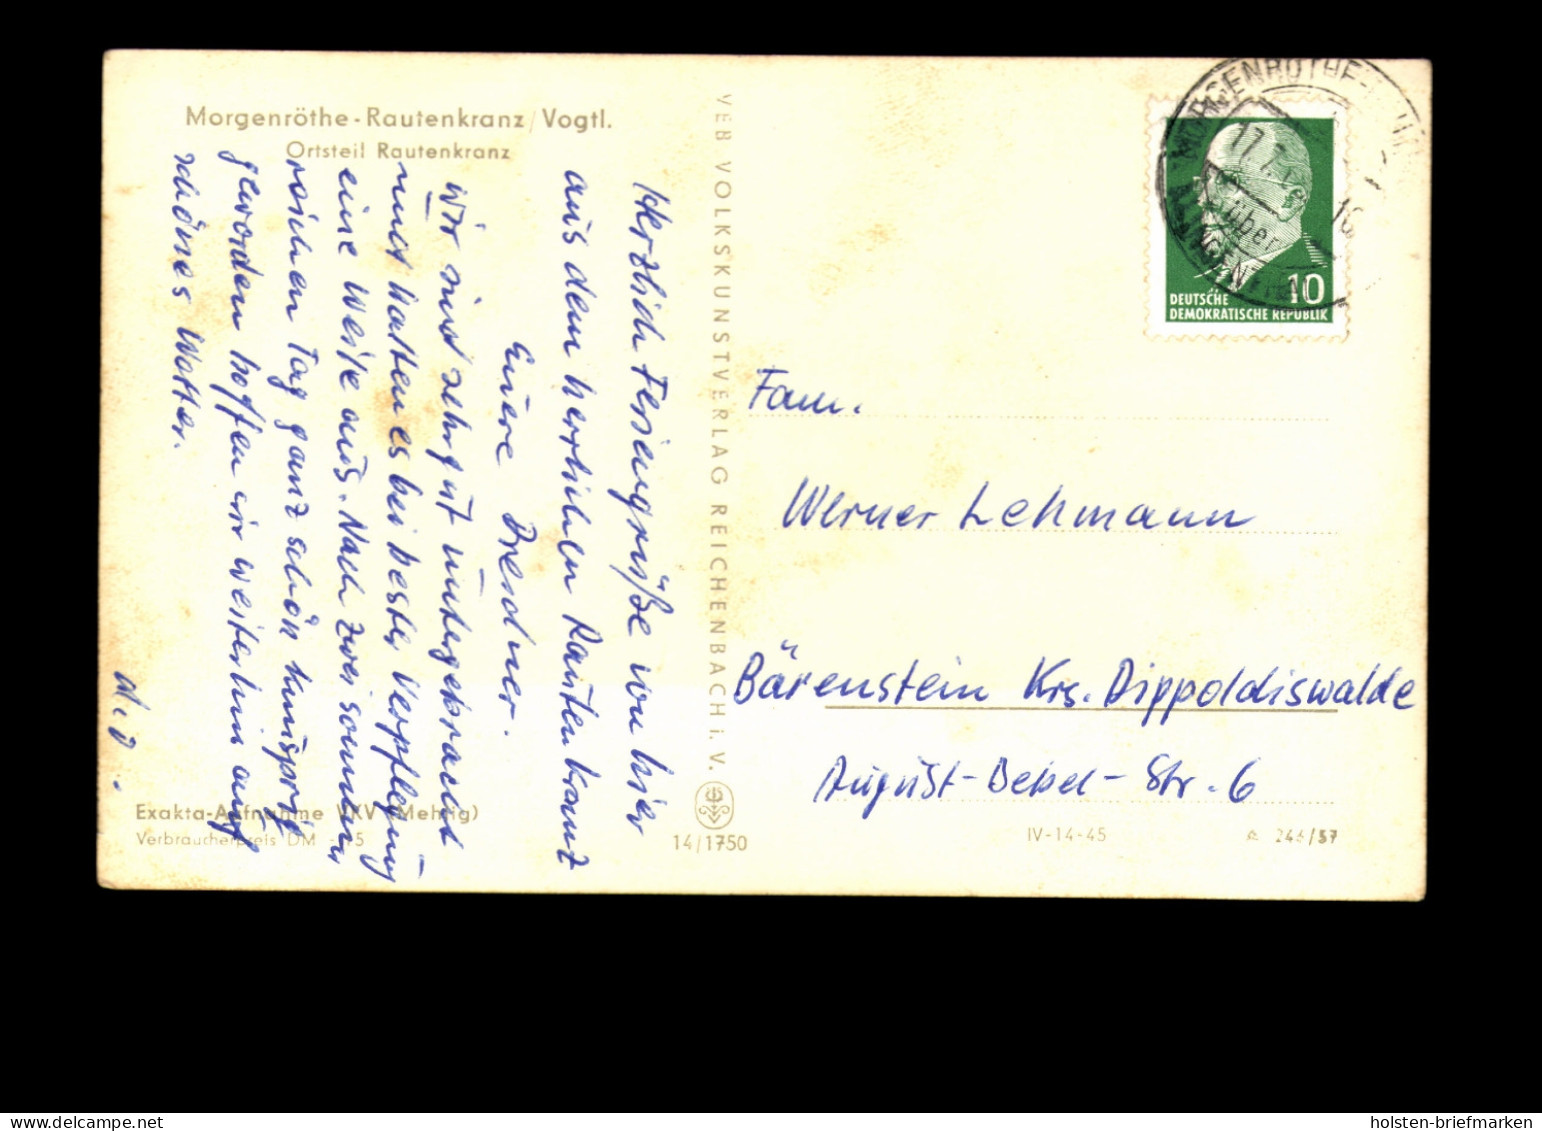 Morgenröthe-Rautenkranz/Vogtl.
Ortsteil Rautenkranz
Herzlich Feriengrüße von hier
aus dem herrlichen Rautenkranz
Euere Dresdner.
Wir sind sehr gut untergebracht
und halten es bei bester Verpflegung
eine Weile aus. Nach zwei sonnen
reichen Tag ganz schön knusprig
geworden hoffen wir weiterhin auf
schönes Wetter.
d.O.
Exakta-Aufnahme VKV (Mehrig)
Verbraucherpreis DM
VEB VOLKSKUNSTVERLAG REICHENBACH i. V.
14/1750
IV-14-45
A 246/57
MORGENRÖTHE-
17.7.
16
über
DEUTSCHE
DEMOKRATISCHE REPUBLIK
10
Fam.
Werner Lehmann
Bärenstein Krs. Dippoldiswalde
August-Bebel-Str. 6
delcampe.net
holsten-briefmarken